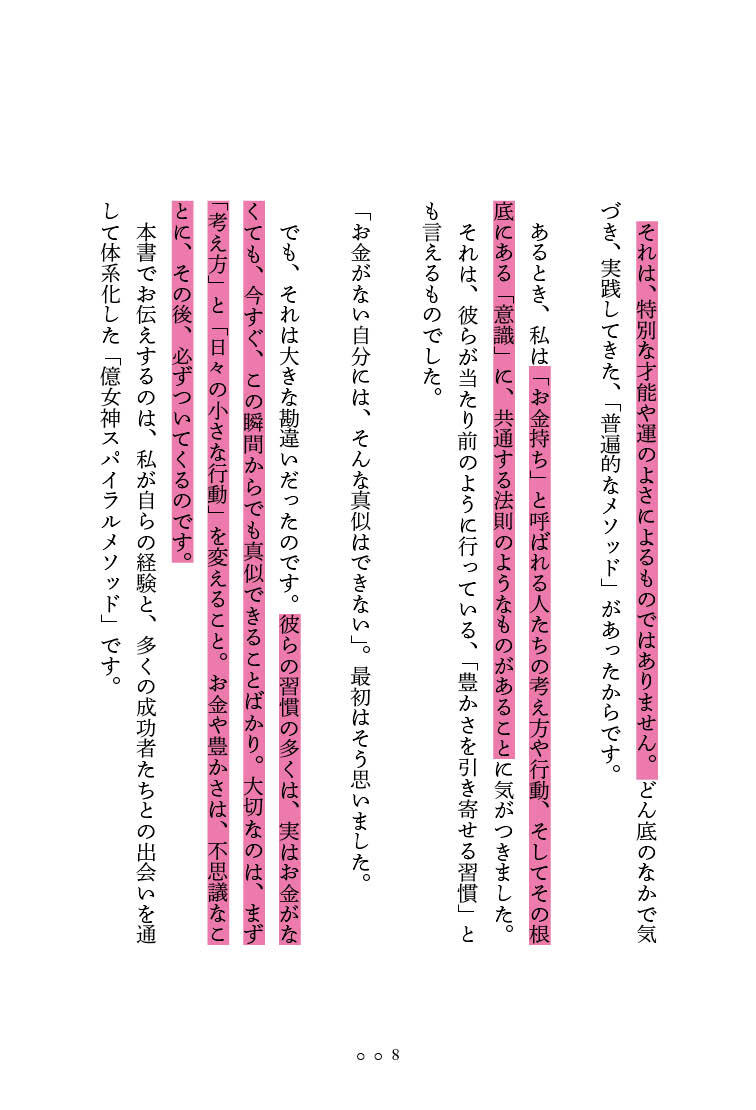 それは、特別な才能や運のよさによるものではありません。どん底のなかで気
づき、実践してきた、「普遍的なメソッド」があったからです。
あるとき、私は「お金持ち」と呼ばれる人たちの考え方や行動、そしてその根
底にある「意識」に、共通する法則のようなものがあることに気がつきました。
それは、彼らが当たり前のように行っている、「豊かさを引き寄せる習慣」と
も言えるものでした。
「お金がない自分には、そんな真似はできない」。最初はそう思いました。
でも、それは大きな勘違いだったのです。彼らの習慣の多くは、実はお金がな
くても、今すぐ、この瞬間からでも真似できることばかり。大切なのは、まず
「考え方」と「日々の小さな行動」を変えること。お金や豊かさは、不思議なこ
とに、その後、必ずついてくるのです。
本書でお伝えするのは、私が自らの経験と、多くの成功者たちとの出会いを通
して体系化した「億女神スパイラルメソッド」です。
8